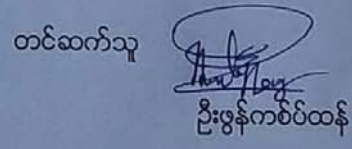 တင်ဆက်သူ
ဦးဖွန်ကစ်ပ်ထန်